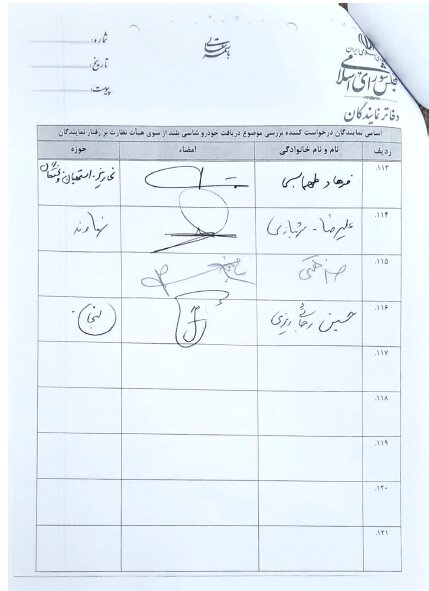 باسمه تعالی
شماره:
تاریخ:
پیوست:
مجلس شورای اسلامی
دفاتر نمایندگان
اسامی نمایندگان درخواست کننده بررسی موضوع دریافت خودرو شاسی بلند از سوی هیأت نظارت بر رفتار نمایندگان
ردیف نام و نام خانوادگی امضاء حوزه
۱۱۳. فرهاد طهماسبی نی ریز، استهبان و بختگان
۱۱۴. علیرضا شهبازی نهاوند
۱۱۵.
۱۱۶. حسین رجایی ریزی لنجان
۱۱۷.
۱۱۸.
۱۱۹.
۱۲۰.
۱۲۱.